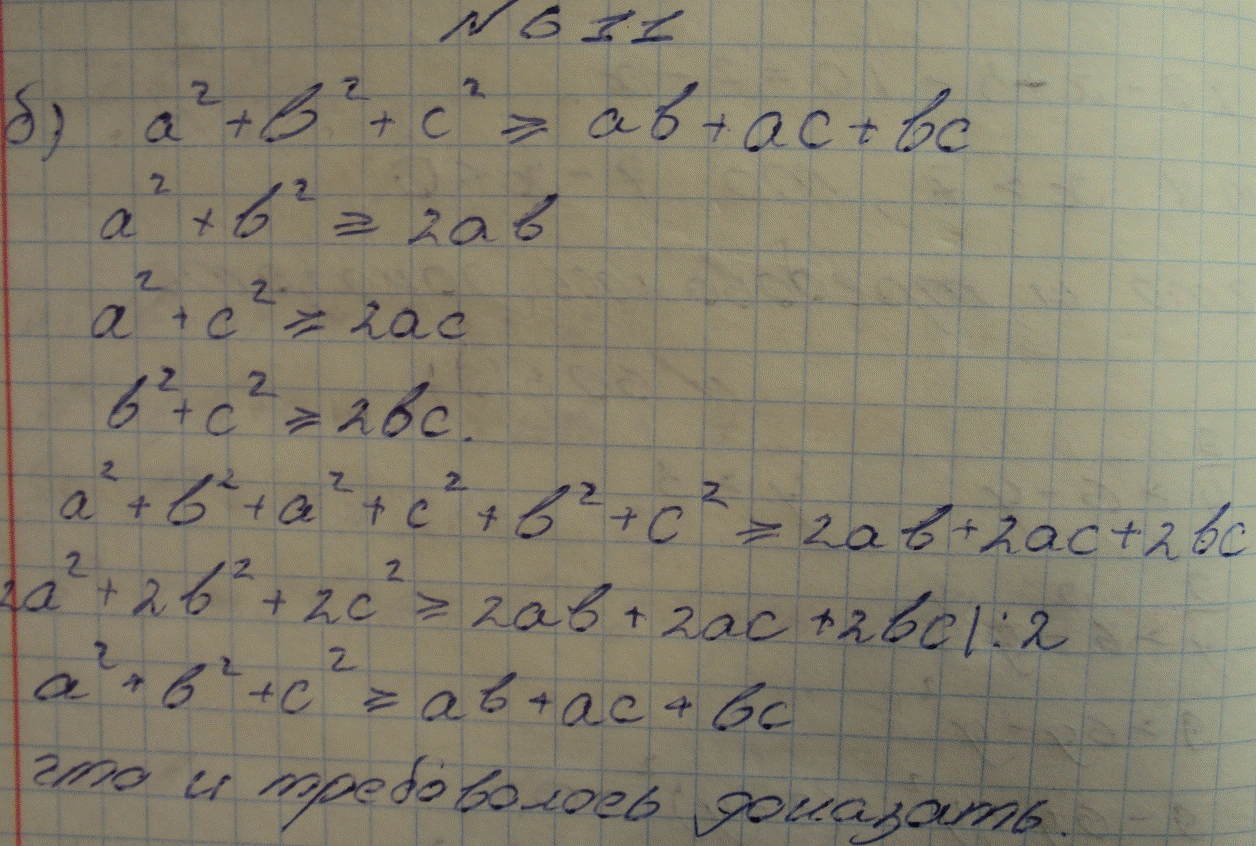 №611
б) a² + b² + c² ⩾ ab + ac + bc
a² + b² ⩾ 2ab
a² + c² ⩾ 2ac
b² + c² ⩾ 2bc.
a² + b² + a² + c² + b² + c² ⩾ 2ab + 2ac + 2bc
2a² + 2b² + 2c² ⩾ 2ab + 2ac + 2bc | : 2
a² + b² + c² ⩾ ab + ac + bc
что и требовалось доказать.